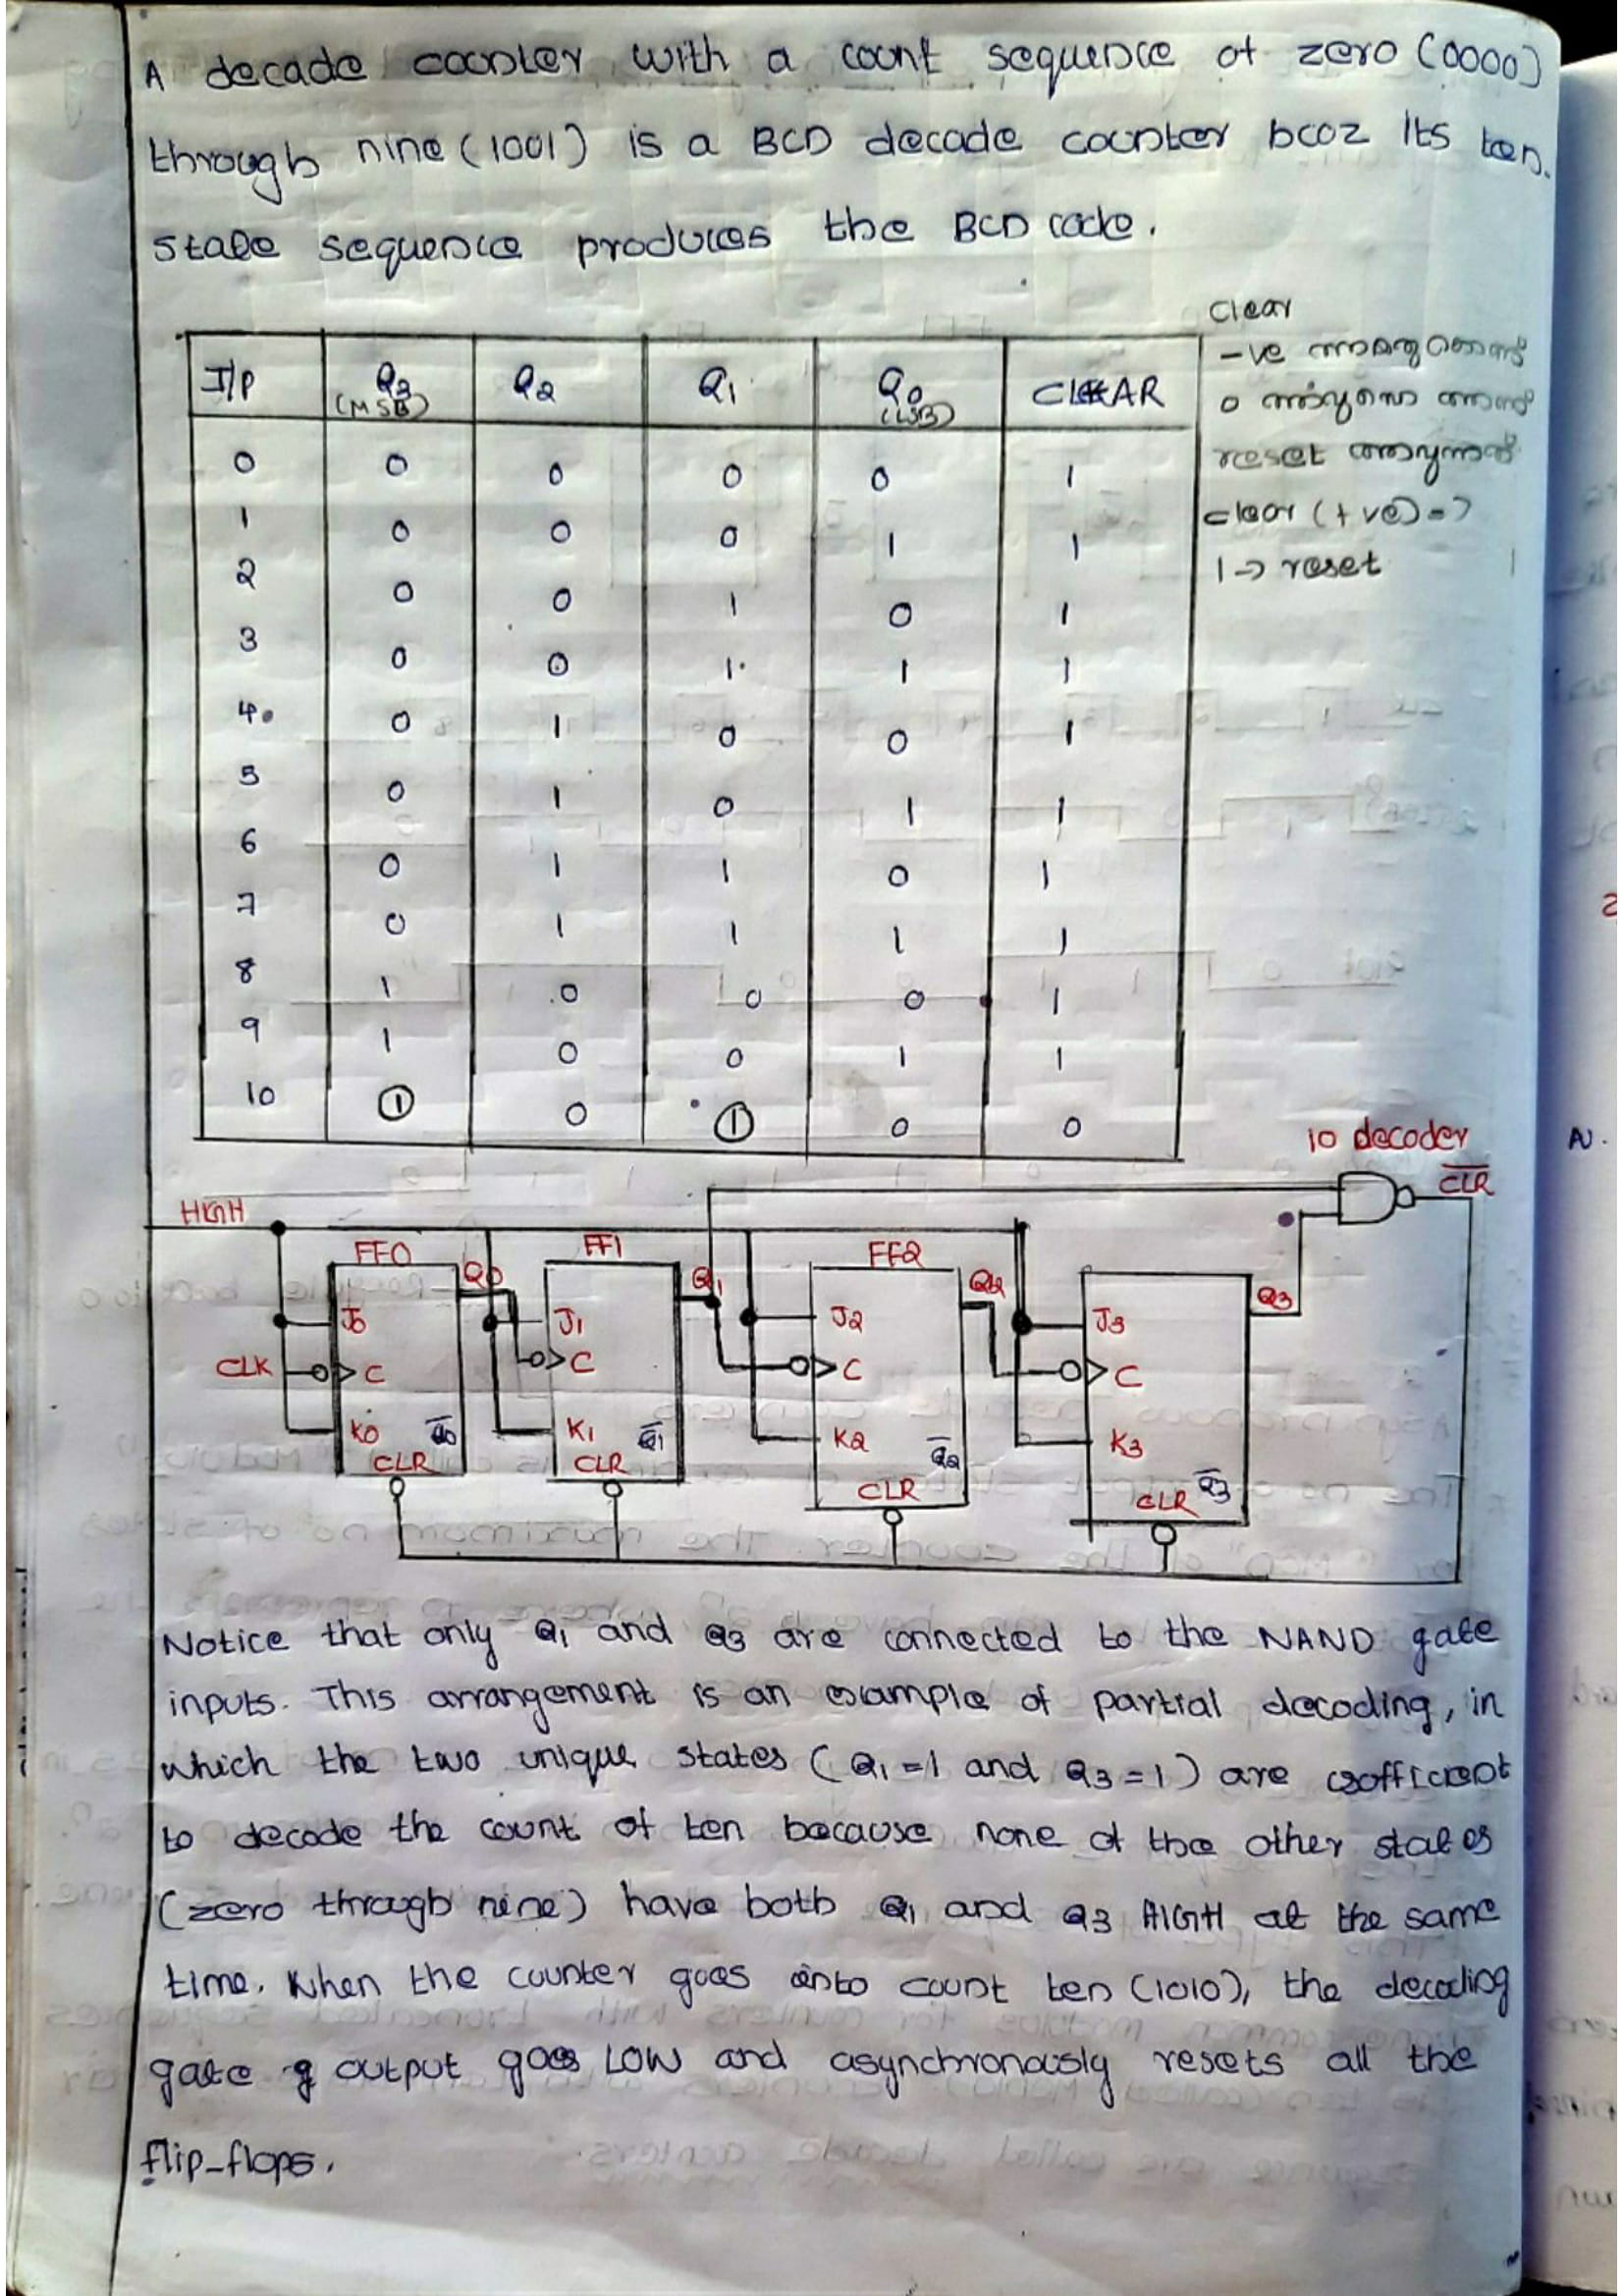 A decade counter with a count sequence of zero (0000)
through nine (1001) is a BCD decade counter bcoz its ten.
state sequence produces the BCD code.
I/P Q3 (MSB) Q2 Q1 Q0 (LSB) CLEAR
0 0 0 0 0 1
1 0 0 0 1 1
2 0 0 1 0 1
3 0 0 1 1 1
4 0 1 0 0 1
5 0 1 0 1 1
6 0 1 1 0 1
7 0 1 1 1 1
8 1 0 0 0 1
9 1 0 0 1 1
10 1 0 1 0 0
Clear
-ve
0
reset
clear (+ve) =>
1 → reset
10 decoder
C̅L̅R̅
HIGH
FF0 Q0 FF1 Q1 FF2 Q2 Q3
J0 J1 J2 J3
CLK C C C C
K0 Q̅0 K1 Q̅1 K2 Q̅2 K3 Q̅3
CLR CLR CLR CLR
Notice that only Q1 and Q3 are connected to the NAND gate
inputs. This arrangement is an example of partial decoding, in
which the two unique states (Q1 = 1 and Q3 = 1) are sufficient
to decode the count of ten because none of the other states
(zero through nine) have both Q1 and Q3 HIGH at the same
time. When the counter goes into count ten (1010), the decoding
gate output goes LOW and asynchronously resets all the
flip-flops.